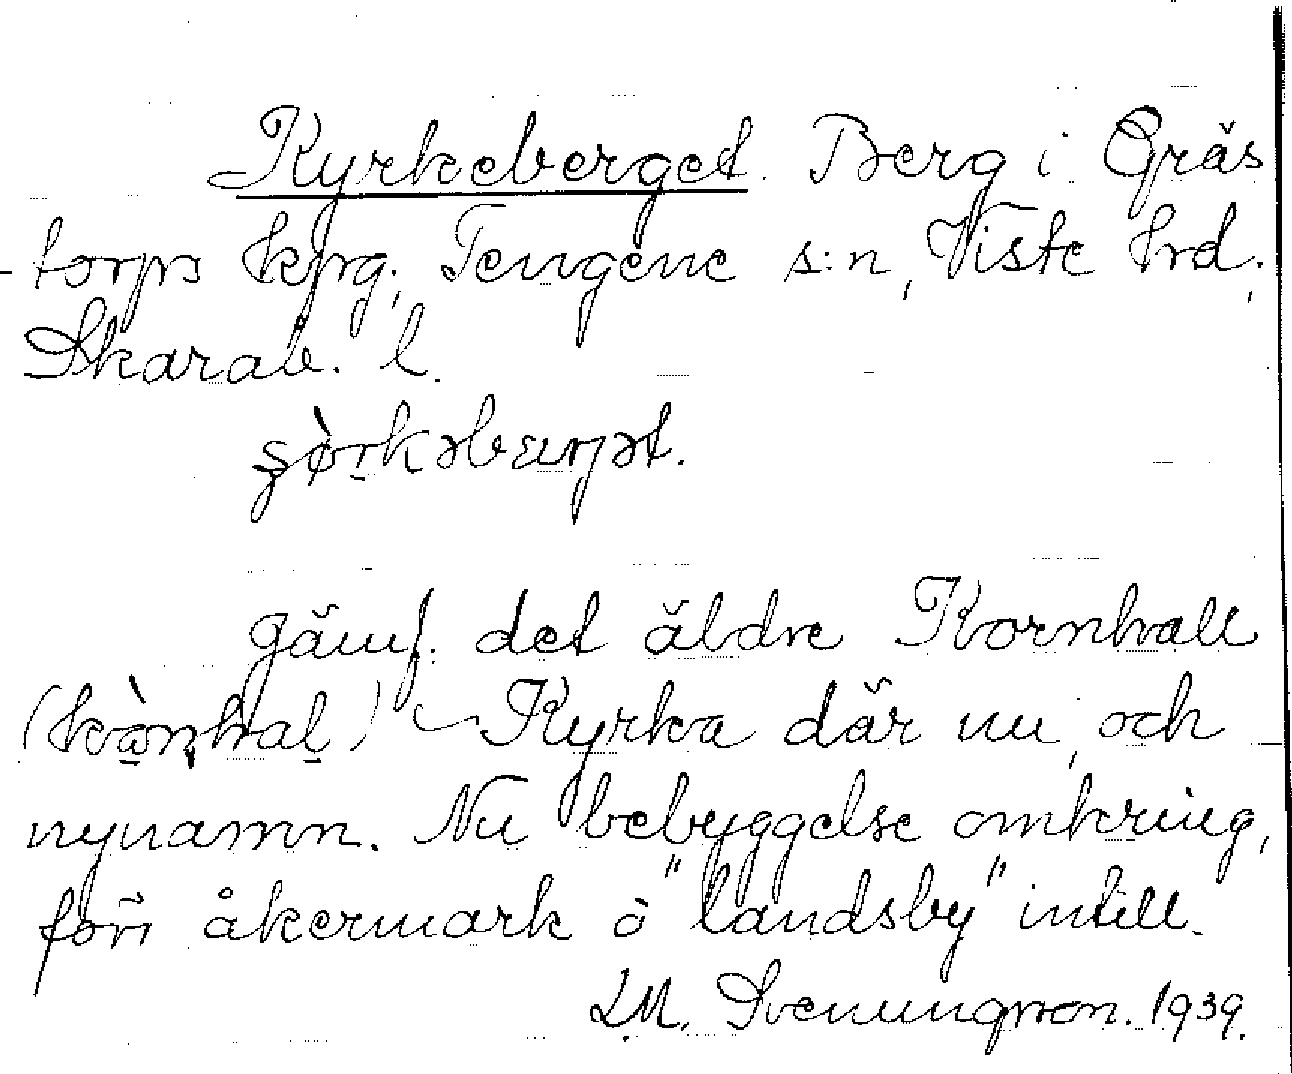 Kyrkeberget. Berg i Gräs
-torps köpg., Tengene s:n, Viste hrd.,
Skarab. l.
Jämf. det äldre Kornhall
Kyrka där nu, och
nynamn. Nu bebyggelse omkring,
förr åkermark o "landsby" intill.
L.M. Svenungsson. 1939.